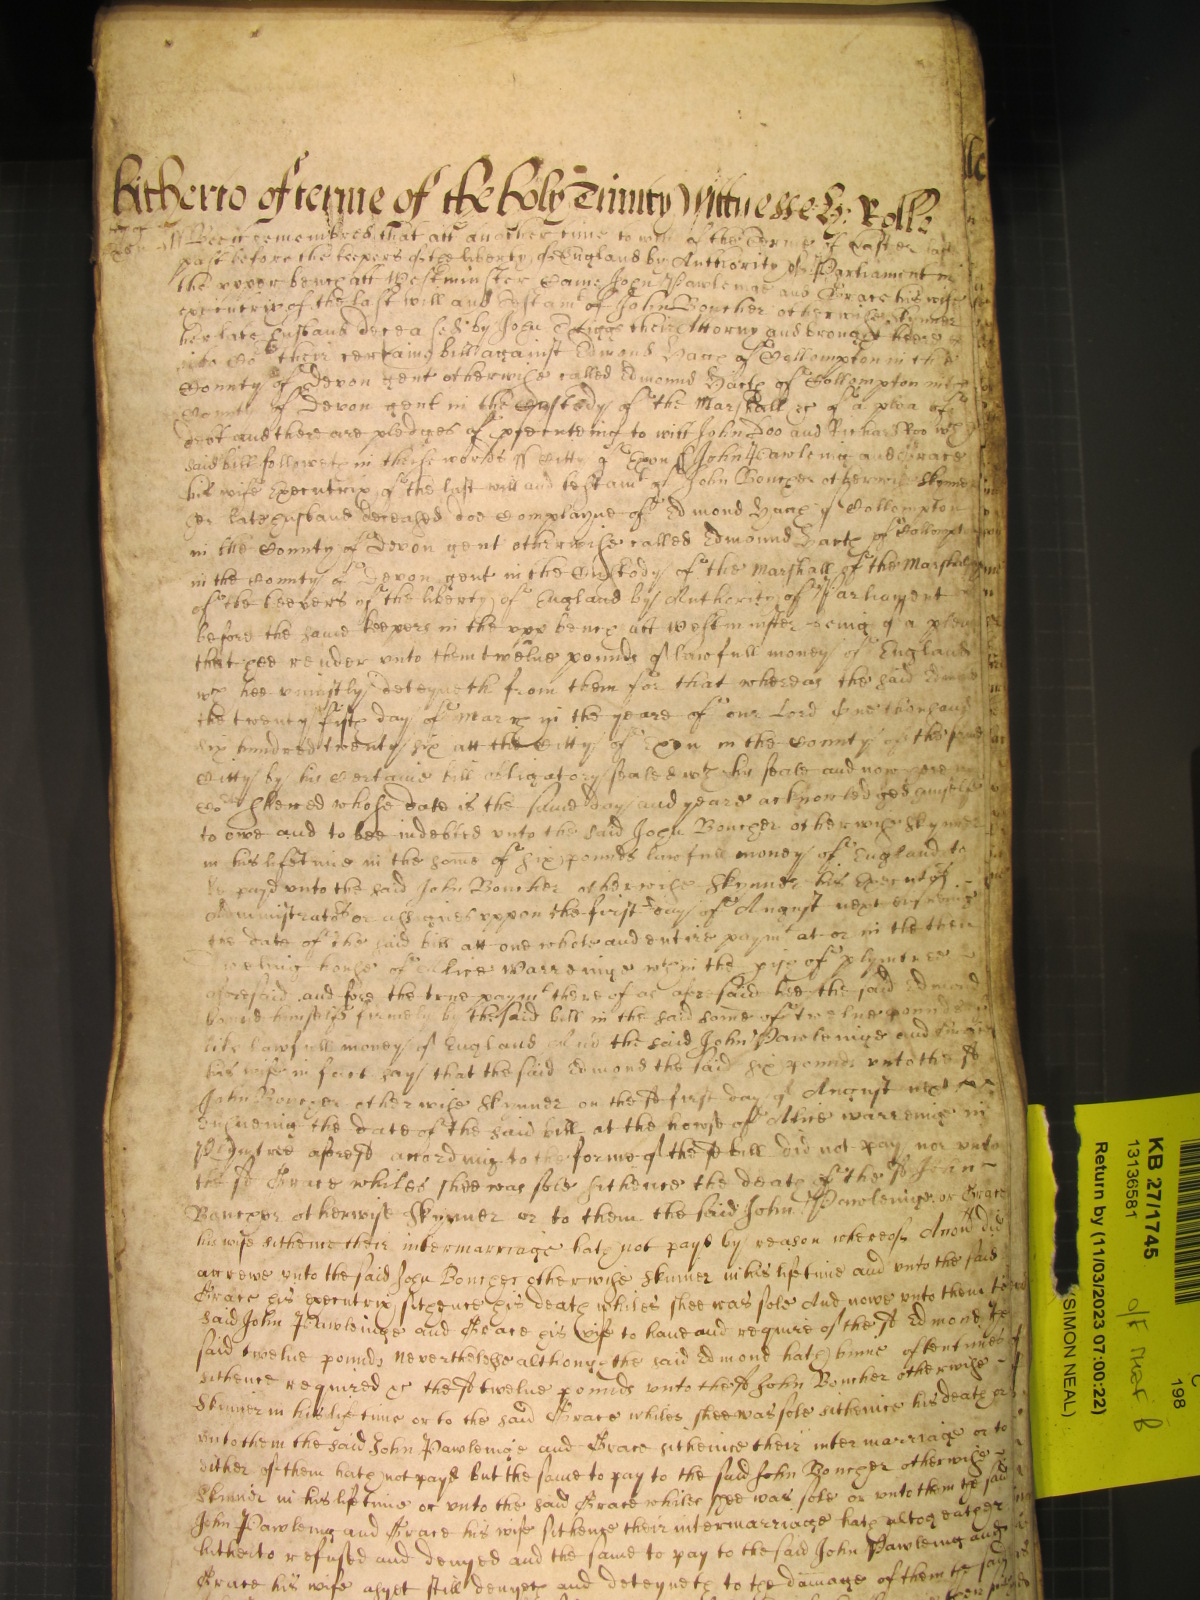 hitherto of terme of the holy Trinity Wittnesseth Rolle
Bee it remembred that att another time to witt of the Terme of Easter last
past before the keepers of the liberty of England by Authority of Parliament in
the upper bench att Westminster Came John Pawleinge and Grace his wife
executrix of the last will and Testamt of John Boucher otherwise Skynner
her late husband deceased by John Trigge their Attorny and brought heere
into Cort their certaine bill against Edmond Hach of Collompton in the
County of Devon gent otherwise called Edmound Hach of Collompton in the
County of Devon gent in the Custody of the Marshall &c of a plea of
debt and there are pledges of prosecuteing to witt John Doo and Richard Roo wch
said bill followeth in these words ss Citty of Exon ss John Pawleing and Grace
his wife Executrix of the last will and testamt of John Boucher otherwise Skynner
her late husband deceased doe Complayne of Edmond Hach of Collompton
in the County of Devon gent otherwise called Edmound Hach of Collompton
in the County of Devon gent in the Custody of the Marshall of the Marshalsey
of the keepers of the liberty of England by Authority of Parliament
before the same keepers in the uppr bench att Westminster being of a plea
that hee render unto them twelve pounds of lawfull money of England
wch hee uniustly deteyneth from them for that whereas the said Edmond
the twenty fifth day of March in the yeare of our Lord One thousand
six hundred twenty six att the Citty of Exon in the County of the same
Citty by his Certaine bill obligatory sealed wth his seale and now here in
Cort shewed whose date is the same day and yeare acknowledged himselfe
to owe and to bee indebted unto the said John Boucher otherwise Skynner
in his lifetime in the some of six pounds lawfull money of England to
be payd unto the said John Boucher otherwise Skynner his Executors
Administrators or assignes uppon the first day of August next ensueing
the date of the said bill att one whole and entire paymt at or in the then
dwelling house of Alice Warreinge wthin the pish of plymtree
aforesaid and fore the true paymt thereof as aforesaid hee the said Edmond
bound himselfe firmely by the said bill in the said some of twelve pounds of
like lawfull money of England And the said John Pawleinge and Grace
his wife in fact say that the said Edmond the said six pounds unto the sd
John Boucher otherwise Skynner on the sd first day of August next
ensueing the date of the said bill at the howse of Alice Warreinge in
Plymtree aforesd according to the forme of the sd bill did not pay nor unto
the sd Grace whiles shee was sole sithence the death of the sd John
Boucher otherwise Skynner or to them the said John Pawleinge or Grace
his wife sithence their intermarriage hath not payd by reason whereof Action did
accrewe unto the said John Boucher otherwise Skinner in his lifetime and unto the said
Grace his executrix sithence his death whiles shee was sole And nowe unto them the
said John Pawleinge and Grace his wife to have and require of the sd Edmond the
said twelve pounds Neverthelesse although the said Edmond hath binne oftentimes
sithence required &c the sd twelve pounds unto the sd John Boucher otherwise
Skinner in his life time or to the said Grace whiles shee was sole sithence his death or
unto them the said John Pawleinge and Grace sithence their intermarriage or to
either of them hath not payd but the same to pay to the said John Boucher otherwise
Skinner in his lifetime or unto the said Grace whiles shee was sole or unto them the said
John Pawleing and Grace his wife sithence their intermarriage hath altogeather
hitherto refused and denyed and the same to pay to the said John Pawleing and
Grace his wife as yet still denyeth and deteyneth to the damage of them the said
KB 27/1745
13136581
O/F Map B
Return by (11/03/2023 07:00:22)
(SIMON NEAL)
198